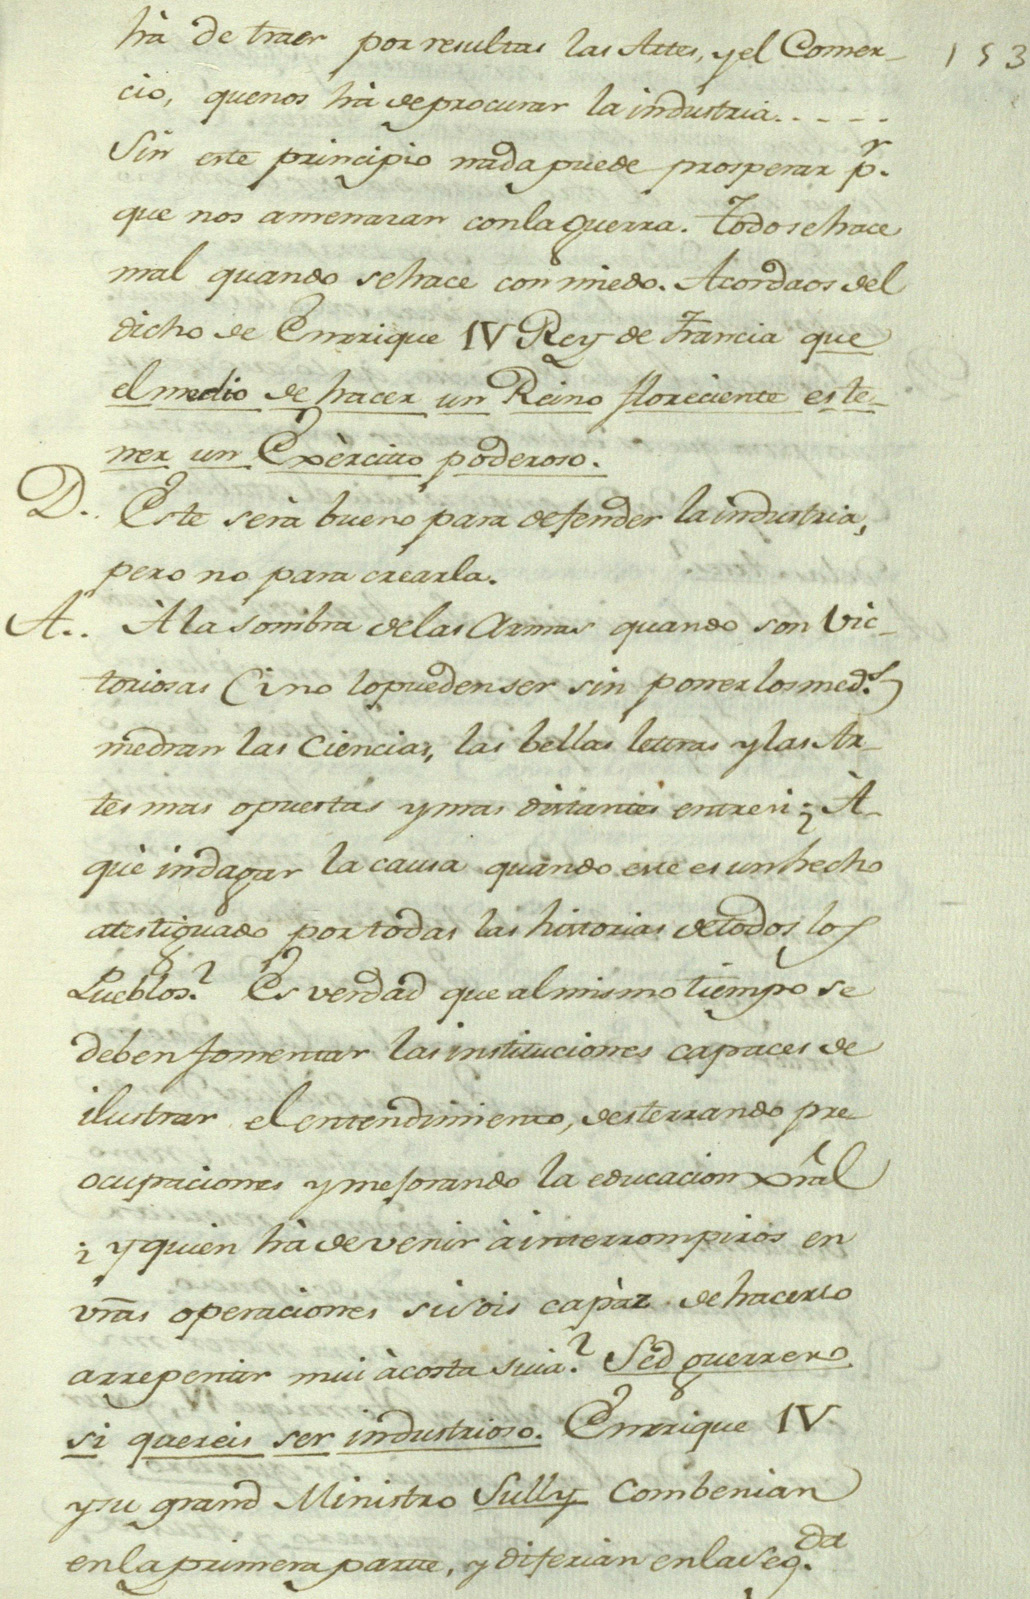 hà de traer por resultas las Artes, y el Comer- 153
cio, que nos hà de procurar la industria.....
Sin este principio nada puede prosperar pr.
que nos amenazan con la guerra. Todo se hace
mal quando se hace con miedo. Acordaos del
dicho de Enrrique IV Rey de Francia que
el medio de hacer un Reino floreciente es te-
ner un Exèrcito poderoso.
D. Este serà bueno para defender la industria,
pero no para crearla.
A. À la sombra de las Armas quando son Vic-
toriosas (i no lo pueden ser sin poner los meds.)
medran las Ciencias, las bellas letras y las Ar-
tes mas opuestas y mas distantes entre si ¿ À
què indagar la causa quando este es un hecho
atestiguado por todas las historias de todos los
Pueblos? Es verdad que al mismo tiempo se
deben fomentar las instituciones capaces de
ilustrar el entendimiento, desterrando pre
ocupaciones y mejorando la educacion xnal
¿ y quien hà de venir à interrompiros en
vras operaciones si sois capàz de hacerlo
arrepentir mui à costa suia? Sed guerrero
si quereis ser industrioso. Enrrique IV
y su grand Ministro Sully Combenian
en la primera parte, y diferian en la Segda.